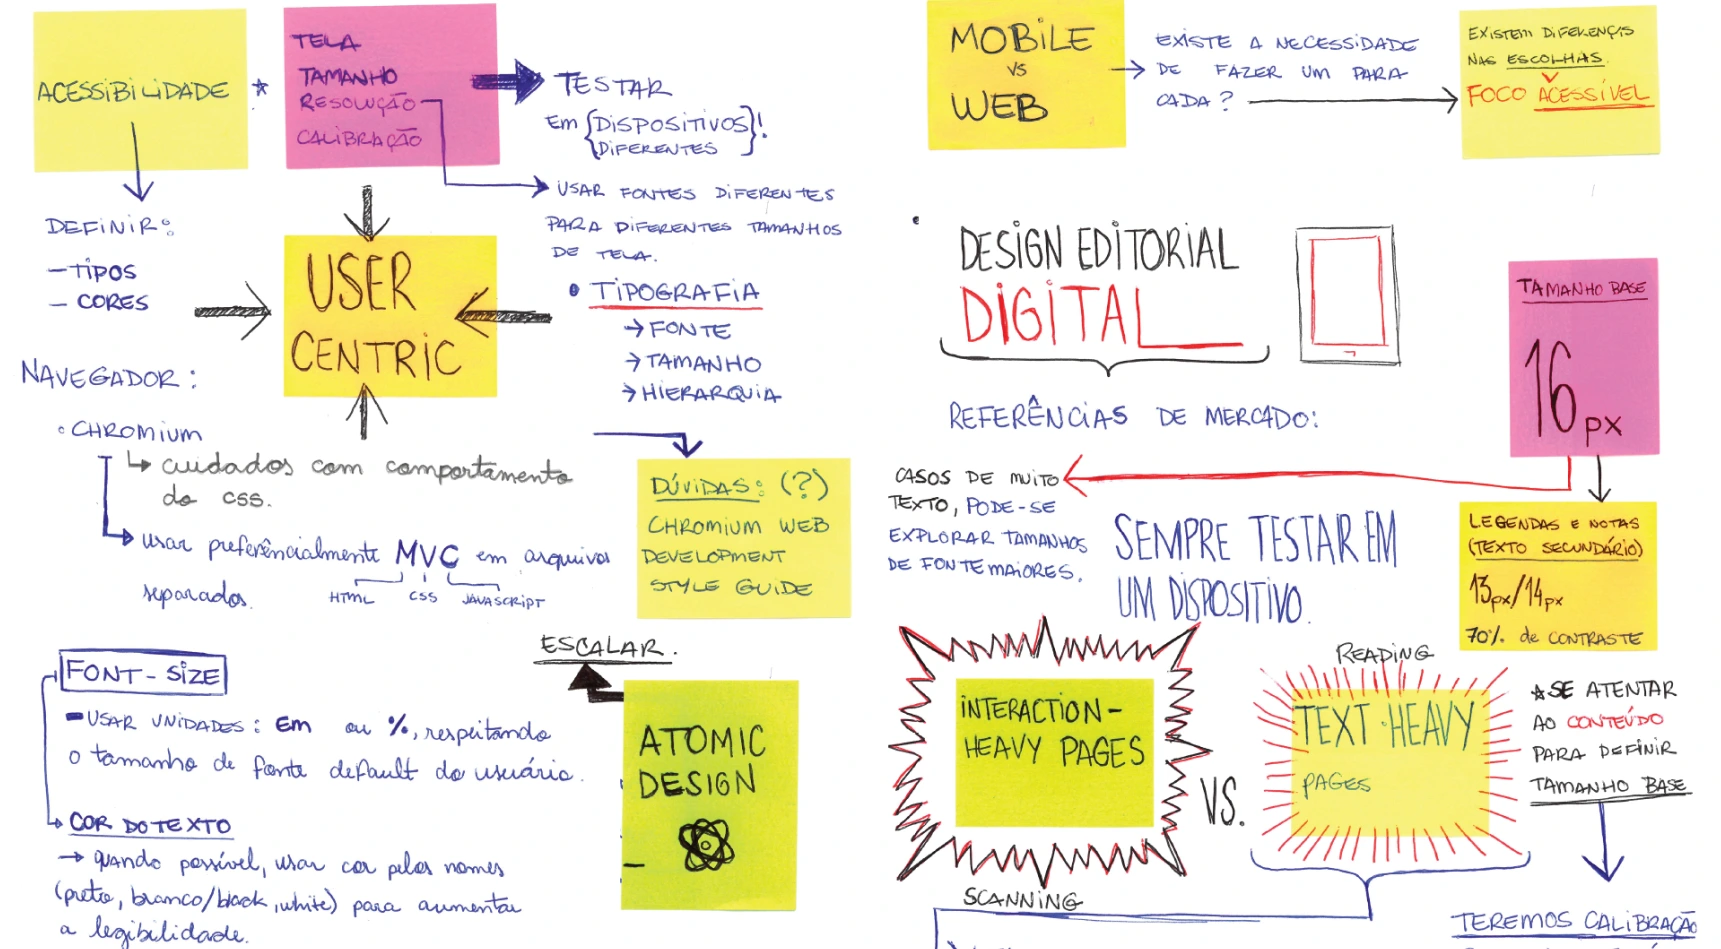 ACESSIBILIDADE *
TELA
TAMANHO
RESOLUÇÃO
CALIBRAÇÃO
TESTAR
Em {DISPOSITIVOS
DIFERENTES}!
USAR FONTES DIFERENTES
PARA DIFERENTES TAMANHOS
DE TELA.
DEFINIR:
- TIPOS
- CORES
USER
CENTRIC
• TIPOGRAFIA
→ FONTE
→ TAMANHO
→ HIERARQUIA
NAVEGADOR:
• CHROMIUM
↳ cuidados com comportamento
do CSS.
→ usar preferêncialmente MVC em arquivos
separados.
HTML CSS JAVASCRIPT
DÚVIDAS: (?)
CHROMIUM WEB
DEVELOPMENT
STYLE GUIDE
FONT-SIZE
- USAR UNIDADES: Em ou %, respeitando
o tamanho de fonte default do usuário.
COR DO TEXTO
→ quando possível, usar cor pelos nomes
(preto, branco/black, white) para aumentar
a legibilidade.
ESCALAR.
ATOMIC
DESIGN
MOBILE
VS
WEB
EXISTE A NECESSIDADE
DE FAZER UM PARA
CADA?
EXISTEM DIFERENÇIS
NAS ESCOLHAS.
FOCO ACESSÍVEL
DESIGN EDITORIAL
DIGITAL
REFERÊNCIAS DE MERCADO:
TAMANHO BASE
16px
CASOS DE MUITO
TEXTO, PODE-SE
EXPLORAR TAMANHOS
DE FONTE MAIORES.
SEMPRE TESTAR EM
UM DISPOSITIVO.
LEGENDAS E NOTAS
(TEXTO SECUNDÁRIO)
13px/14px
70% de CONTRASTE
INTERACTION-
HEAVY PAGES
SCANNING
VS.
READING
TEXT-HEAVY
PAGES
*SE ATENTAR
AO CONTEÚDO
PARA DEFINIR
TAMANHO BASE
TEREMOS CALIBRAÇÃO